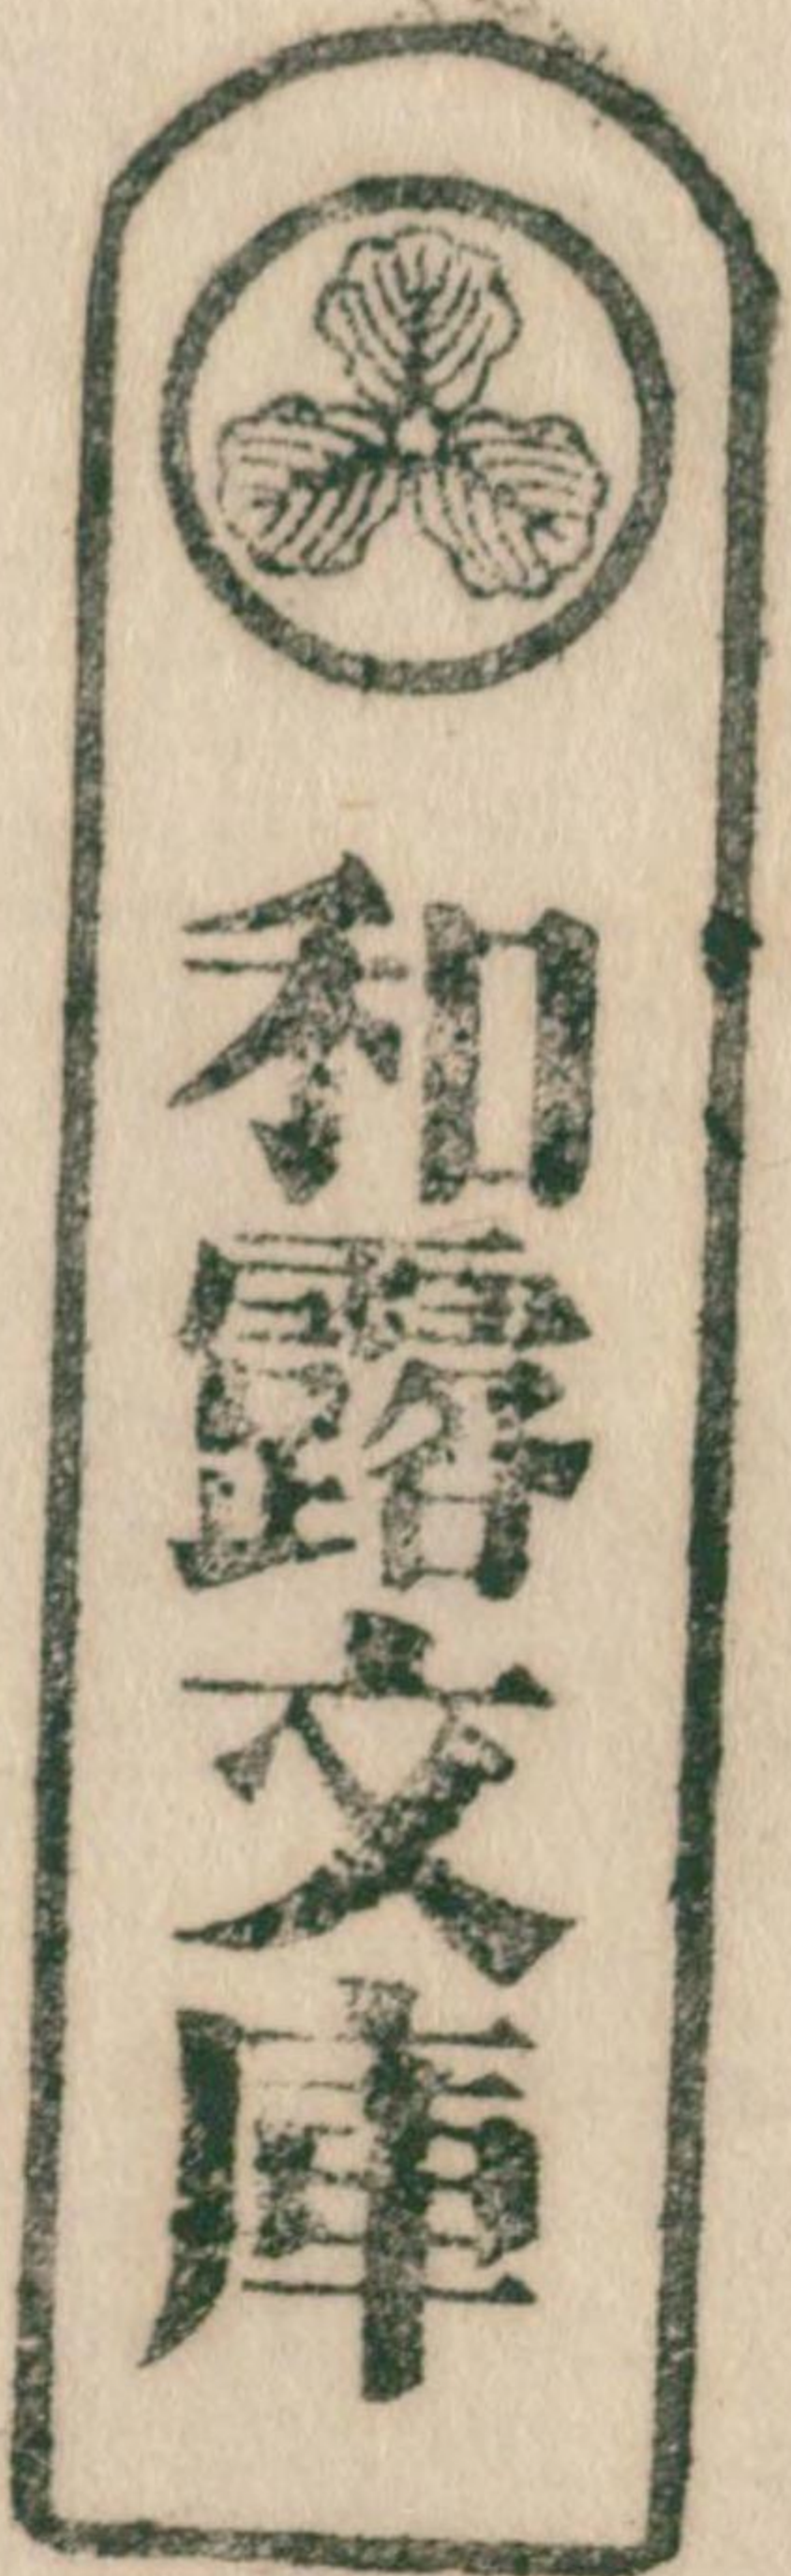 和露文庫